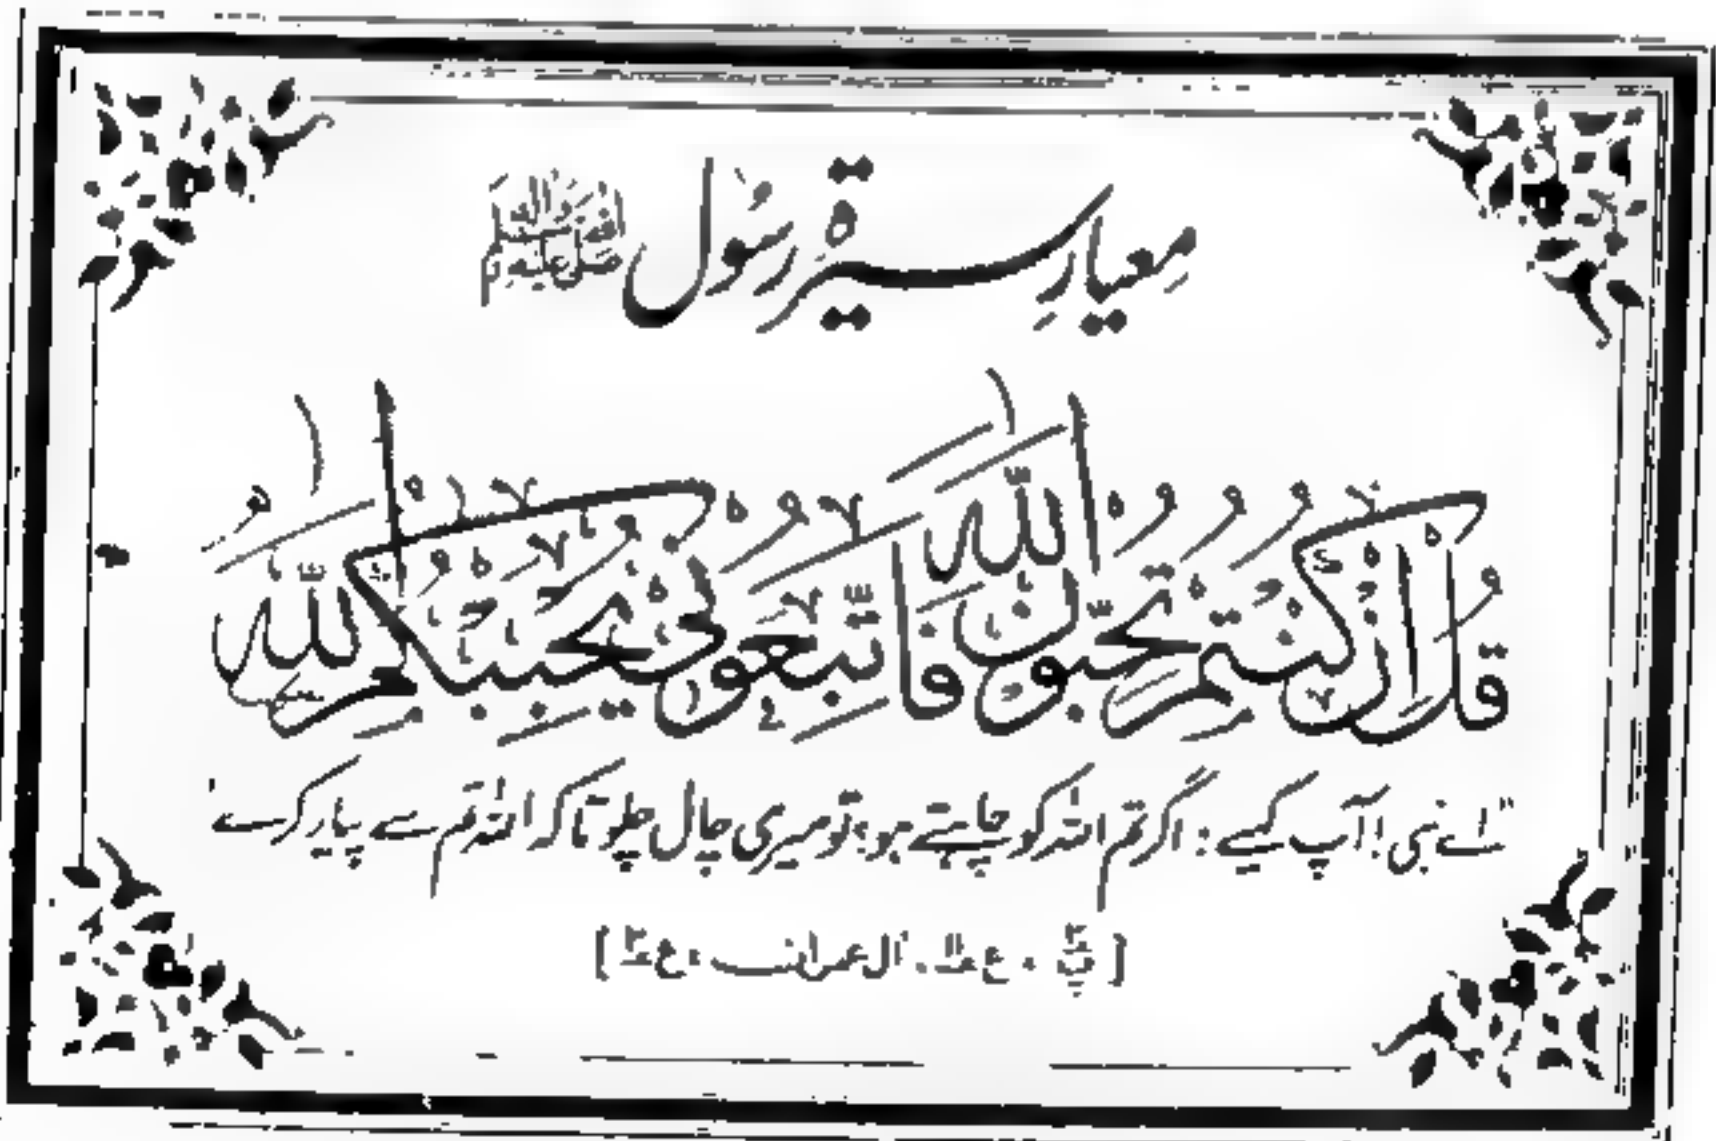 معیارِ سیرۃِ رسُول صلی اللہ علیہ وسلم
قُلْ اِنْ كُنْتُمْ تُحِبُّوْنَ اللّٰهَ فَاتَّبِعُوْنِیْ يُحْبِبْكُمُ اللّٰهُ
"اے نبی! آپ کہیے: اگر تم اللہ کو چاہتے ہو؛ تو میری چال چلو تاکہ اللہ تم سے پیار کرے"
[پ۳، ع، آل عمران، ع]